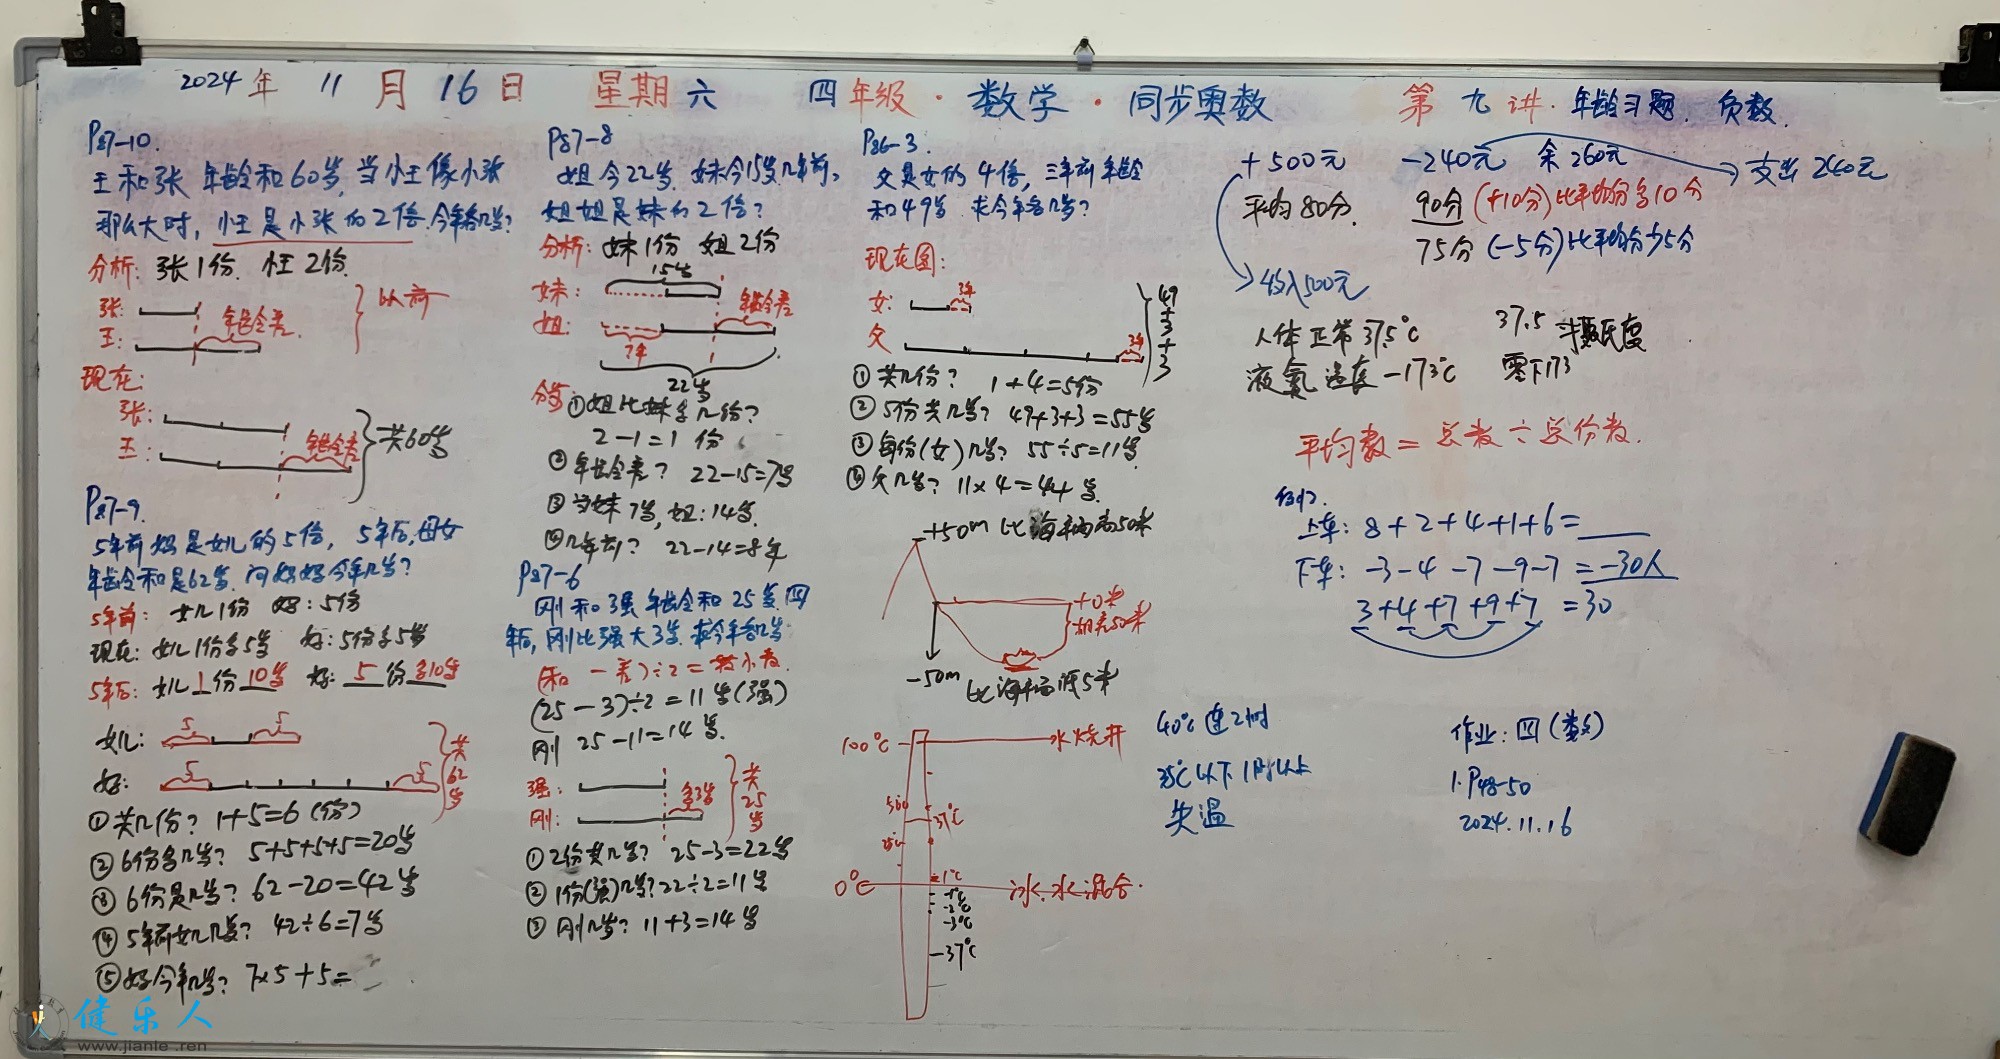 2024年 11月16日 星期六 四年级·数学·同步奥数 第九讲·年龄习题.负数.
P87-10.
王和张年龄和60岁,当小王像小张
那么大时,小王是小张的2倍.今年各几岁?
分析:张1份.小王2份.
张:
王:
年龄差.
以前
现在:
张:
王:
年龄差
共60岁
P87-9.
5年前妈是女儿的5倍,5年后,母女
年龄和是62岁.问妈妈今年几岁?
5年前:女儿1份 妈:5份
现在:女儿1份多5岁 妈:5份多5岁
5年后:女儿1份10岁 妈:5份多10岁
女儿: 5 5
妈: 5 5
共62岁
①共几份? 1+5=6(份)
②6份多几岁? 5+5+5+5=20岁
③6份是几岁? 62-20=42岁
④5年前女儿几岁? 42÷6=7岁
⑤妈今年几岁? 7×5+5=
P87-8
姐今22岁.妹今15岁.几年前,
姐姐是妹的2倍?
分析:妹1份 姐2份
15岁
妹:
姐:
年龄差
7年
22岁
①姐比妹多几份?
2-1=1份
②年龄差? 22-15=7岁
③当妹7岁,姐:14岁.
④几年前? 22-14=8年
P87-6
刚和强年龄和25岁.四
年后,刚比强大3岁.求今年各几岁
(和-差)÷2=较小数.
(25-3)÷2=11岁(强)
刚 25-11=14岁.
强:
刚:
多3岁
共25岁
①2份共几岁? 25-3=22岁
②1份(强)几岁? 22÷2=11岁
③刚几岁? 11+3=14岁
P86-3.
父是女的4倍,三年前年龄
和49岁.求今年各几岁?
现在图:
女: 3年
父 3年
49+3+3
①共几份? 1+4=5份
②5份共几岁? 49+3+3=55岁
③每份(女)几岁? 55÷5=11岁.
④父几岁? 11×4=44岁.
+50m 比海平面高50米
+0米
-50m
100℃ 水烧开
37℃
0℃ 冰.水混合.
1℃
-1℃
-2℃
-3℃
-37℃
+500元 -240元 余260元 支出240元
平均80分. 90分(+10分)比平均分多10分
75分(-5分)比平均分少5分
收入500元
人体正常37.5℃ 37.5摄氏度
液氮温度-173℃ 零下173
平均数=总数÷总份数.
例2.
上车: 8+2+4+1+6=
下车: -3-4-7-9-7=-30人
3+4+7+9+7=30
40℃连2小时
35℃以下1小时以上
失温
作业:四(数)
1.P48-50
2024.11.16
健乐人
www.jianle.ren